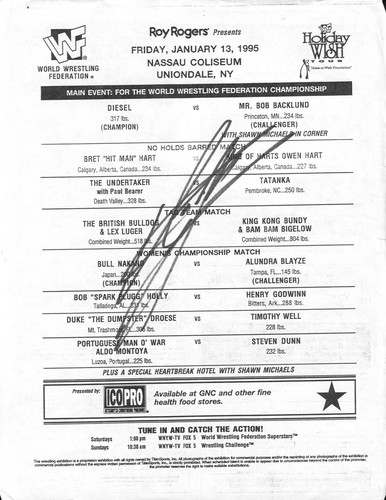 WORLD WRESTLING
FEDERATION®
Roy Rogers® Presents
FRIDAY, JANUARY 13, 1995
NASSAU COLISEUM
UNIONDALE, NY
Holiday
WISH
TOUR
MAIN EVENT: FOR THE WORLD WRESTLING FEDERATION CHAMPIONSHIP
DIESEL vs MR. BOB BACKLUND
317 lbs. Princeton, MN...234 lbs.
(CHAMPION) (CHALLENGER)
WITH SHAWN MICHAELS IN CORNER
NO HOLDS BARRED MATCH
BRET "HIT MAN" HART KING OF HARTS OWEN HART
Calgary, Alberta, Canada...234 lbs. Calgary, Alberta, Canada...227 lbs.
THE UNDERTAKER vs TATANKA
with Paul Bearer Pembroke, NC...250 lbs.
Death Valley...328 lbs.
TAG TEAM MATCH
THE BRITISH BULLDOG vs KING KONG BUNDY
& LEX LUGER & BAM BAM BIGELOW
Combined Weight...518 lbs. Combined Weight...804 lbs.
WOMEN'S CHAMPIONSHIP MATCH
BULL NAKANO vs ALUNDRA BLAYZE
Japan... lbs. Tampa, FL...145 lbs.
(CHAMPION) (CHALLENGER)
BOB "SPARK PLUGG" HOLLY vs HENRY GODWINN
Talladega, AL...231 lbs. Bitters, Ark...288 lbs.
DUKE "THE DUMPSTER" DROESE vs TIMOTHY WELL
Mt. Trashmore, FL...305 lbs. 228 lbs.
PORTUGUESE MAN O' WAR vs STEVEN DUNN
ALDO MONTOYA 232 lbs.
Luzoa, Portugal...225 lbs.
PLUS A SPECIAL HEARTBREAK HOTEL WITH SHAWN MICHAELS
Presented by: ICOPRO
Available at GNC and other fine
health food stores.
TUNE IN AND CATCH THE ACTION!
Saturdays 1:00 pm WNYW-TV FOX 5 World Wrestling Federation Superstars™
Sundays 10:30 am WNYW-TV FOX 5 Wrestling Challenge™